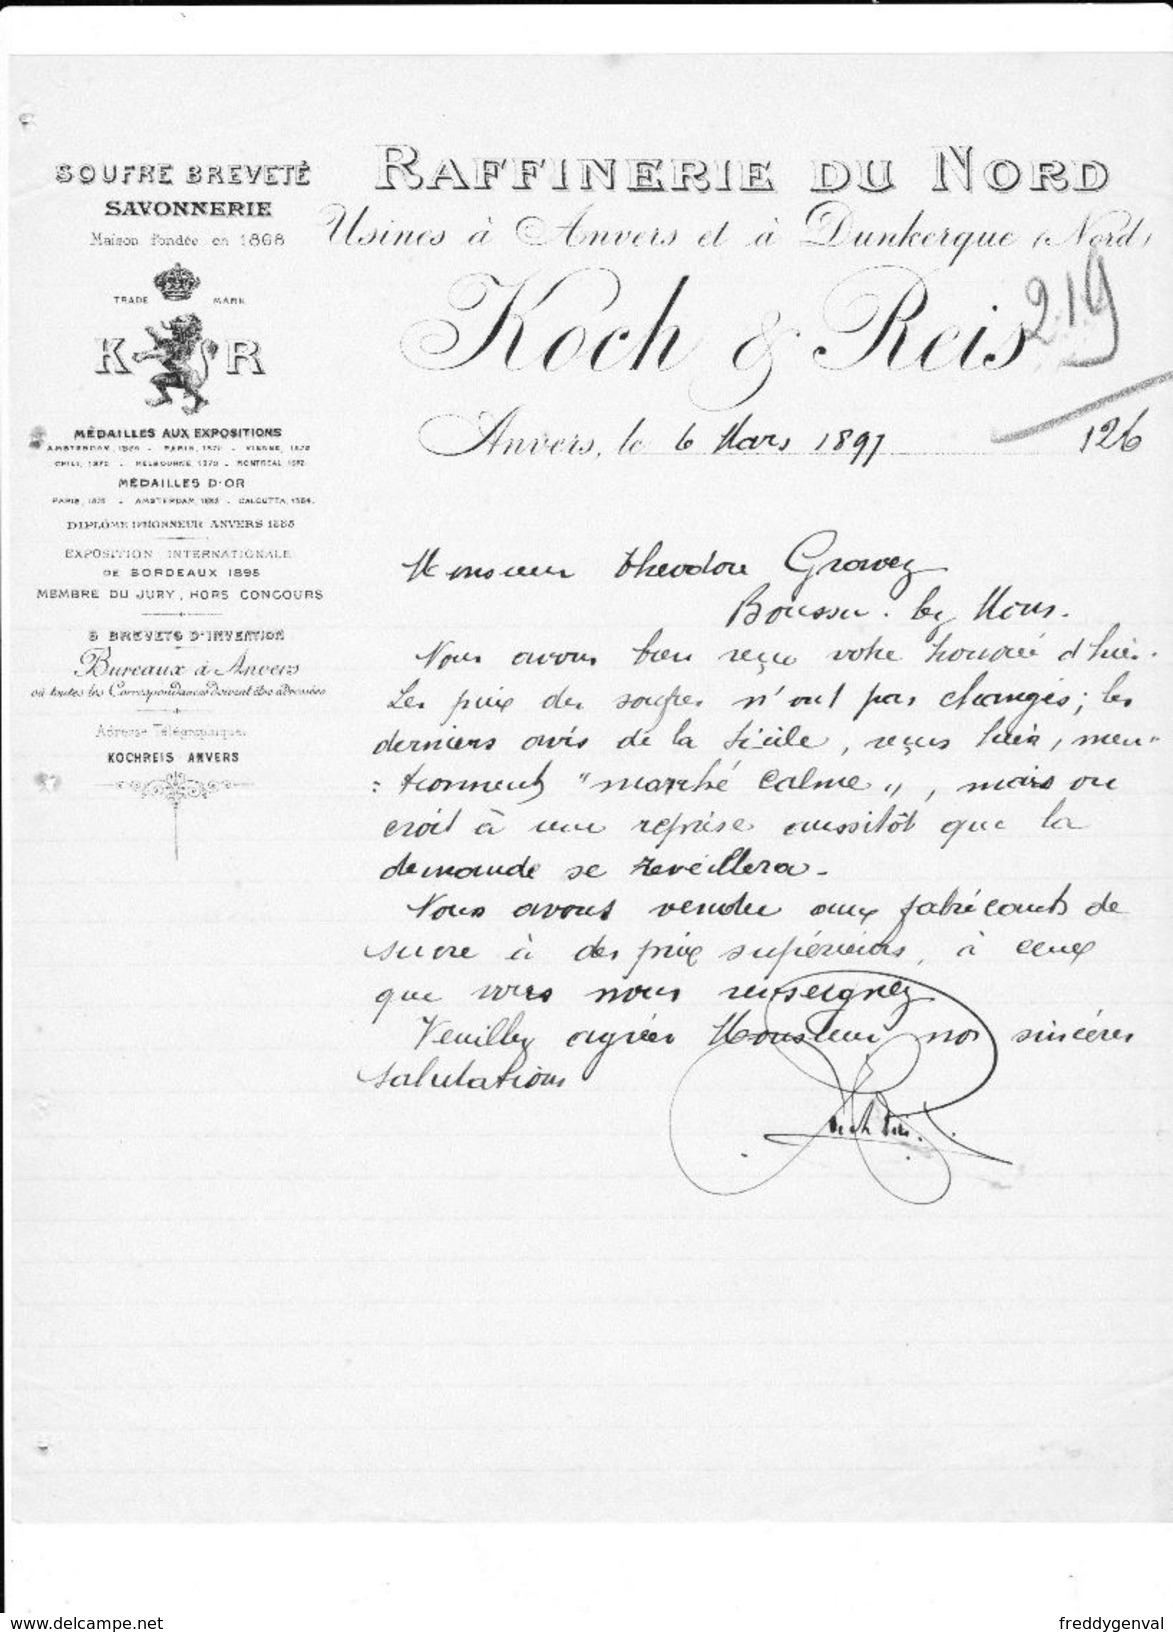 SOUFRE BREVETÉ
SAVONNERIE
Maison fondée en 1868
TRADE MARK
K R
MÉDAILLES AUX EXPOSITIONS
AMSTERDAM, PARIS, VIENNE,
CHILI, 1875 - MELBOURNE, - MONTREAL
MÉDAILLES D'OR
PARIS, - AMSTERDAM, 1883 - CALCUTTA, 1884.
DIPLÔME D'HONNEUR ANVERS 1885
EXPOSITION INTERNATIONALE
DE BORDEAUX 1895
MEMBRE DU JURY, HORS CONCOURS
BREVETS D'INVENTION
Bureaux à Anvers
où toutes les Correspondances doivent être adressées
Adresse Télégraphique:
KOCHREIS ANVERS
RAFFINERIE DU NORD
Usines à Anvers et à Dunkerque (Nord)
Koch & Reis
219
Anvers, le 6 Mars 1897 126
Monsieur théodore Gravez
Boussu. lez Mons.
Nous avons bien reçu votre honorée d'hier.
Les prix des soufres n'ont pas changés; les
derniers avis de la Sicile, reçus hier, men-
:tionnent "marché calme", mais on
croit à une reprise aussitôt que la
demande se reveillera.
Nous avons vendu aux fabricants de
sucre à des prix supérieurs, à ceux
que vous nous renseignez
Veuillez agréer Monsieur nos sincères
salutations
Koch Reis.
www.delcampe.net
freddygenval